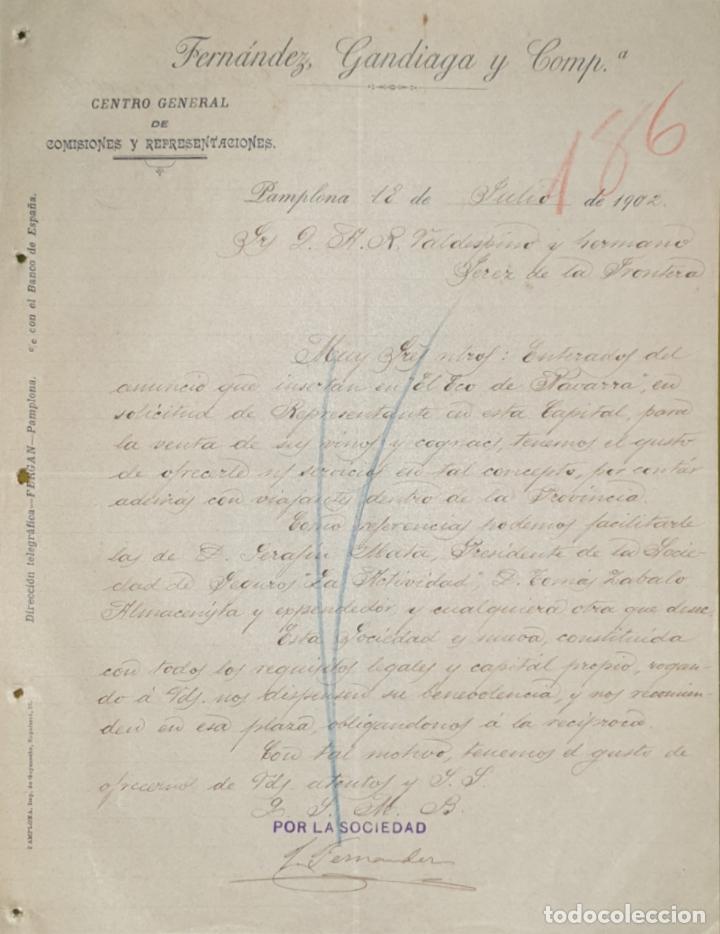 Fernández, Gandiaga y Comp.ª
CENTRO GENERAL
DE
COMISIONES Y REPRESENTACIONES.
186
Pamplona 18 de Julio de 1902.
Srs D. A. R. Valdespino y hermano
Jerez de la Frontera
Muy Sres ntros: Enterados del
anuncio que insertan en "El Eco de Navarra", en
solicitud de Representante en esta Capital, para
la venta de sus vinos y cognacs, tenemos el gusto
de ofrecerle ns servicios en tal concepto, por contar
además con viajantes dentro de la Provincia.
Como referencias podemos facilitarle
las de D. Serafin Mata, Presidente de la Socie-
dad de Seguros "La Actividad", D. Tomás Zabalo
Almacenista y expendedor, y cualquiera otra que desee.
Esta Sociedad es nueva, constituida
con todos los requisitos legales y capital propio, rogan-
do á Vds. nos dispensen su benevolencia, y nos recomien-
den en esa plaza, obligandonos á la reciproca.
Con tal motivo, tenemos el gusto de
ofrecernos de Vds atentos y S. S.
Q. S. M. B
POR LA SOCIEDAD
Fernandez
Dirección telegráfica—FERGAN—Pamplona. c/c con el Banco de España.
PAMPLONA. Imp. de
todocoleccion